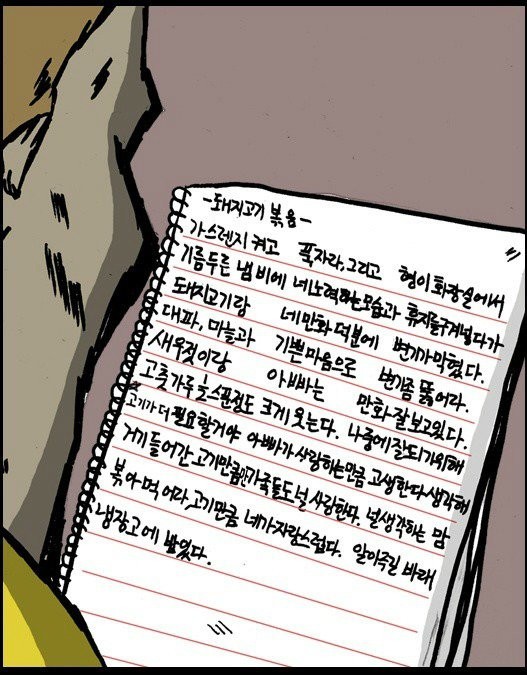 -돼지고기 볶음-
가스렌지 켜고 푹자라,그리고 형이 화장실에서
기름두른 냄비에 네노력하는모습과 휴지를구겨넣다가
돼지고기랑 네만화 덕분에 변기가막혔다.
대파, 마늘과 기쁜마음으로 변기좀 뚫어라.
새우젓이랑 아빠는 만화 잘보고있다.
고춧가루 한스푼정도 크게 웃는다. 나중에잘되기위해
고기가 더 필요할거야 아빠가 사랑하는만큼 고생한다생각해
거기들어간 고기만큼만가족들도널 사랑한다. 널생각하는 맘
볶아 먹어라 고기만큼 네가자랑스럽다. 알아주길 바래
냉장고에 밥있다.